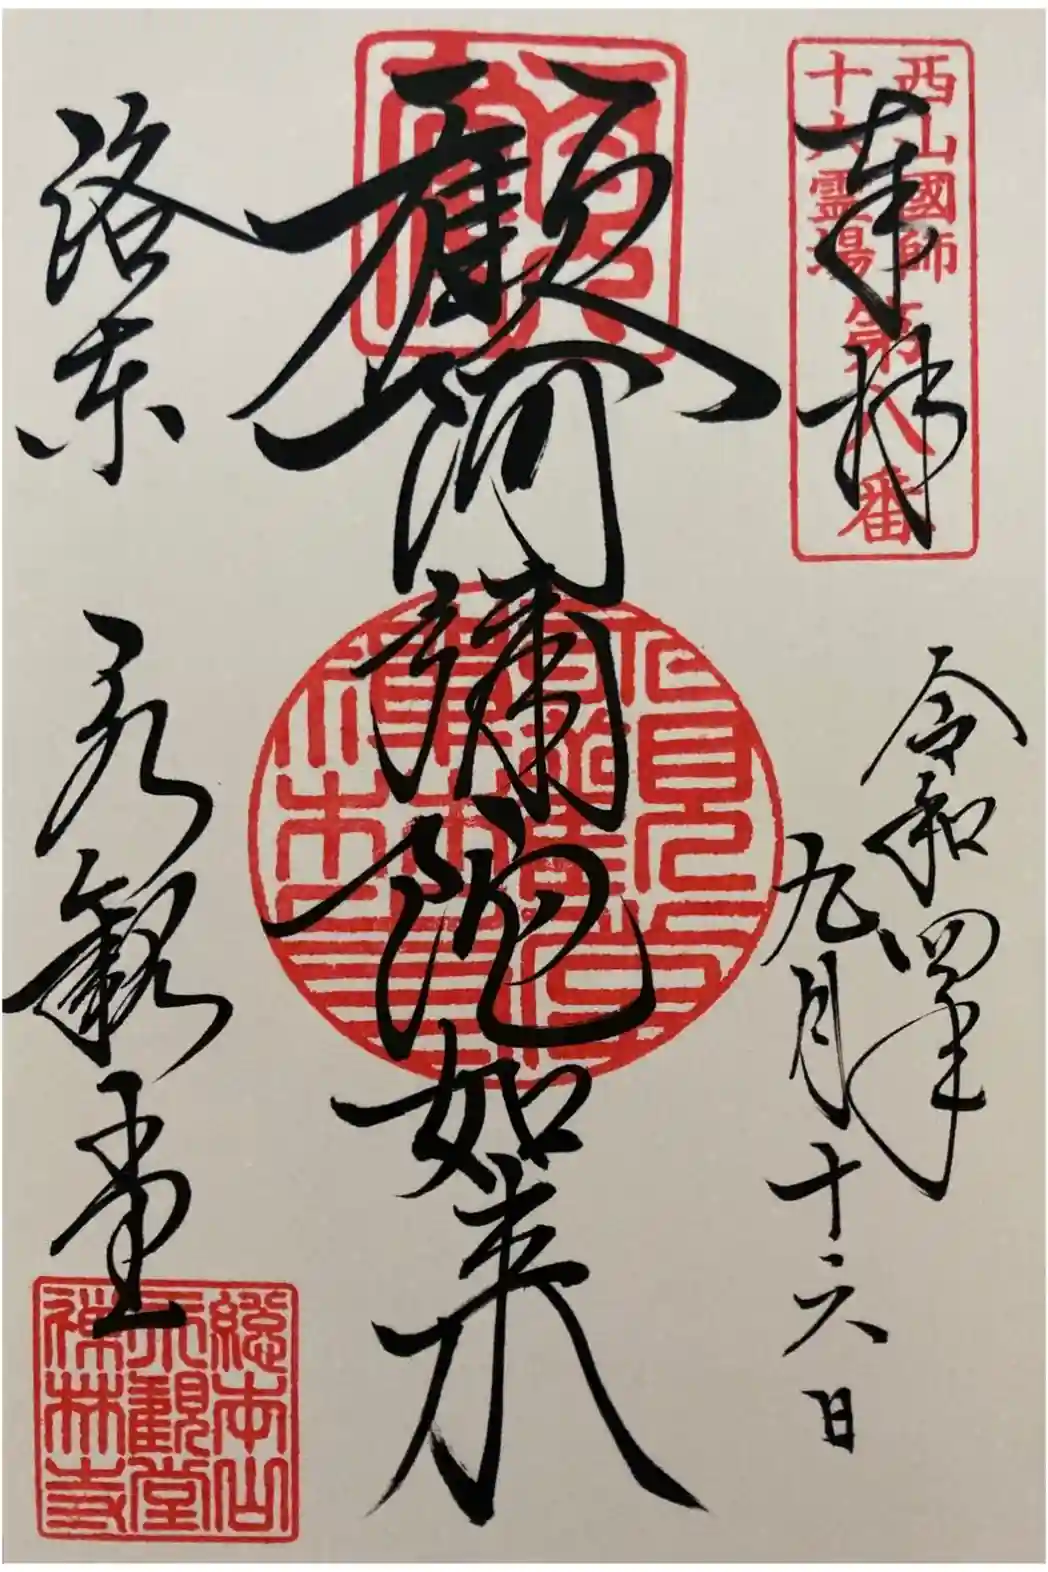 西山國師
十六霊場
第八番
奉拝
令和四年
九月十六日
顧阿彌陀如来
洛東
永観堂
總本山
永觀堂
禅林寺